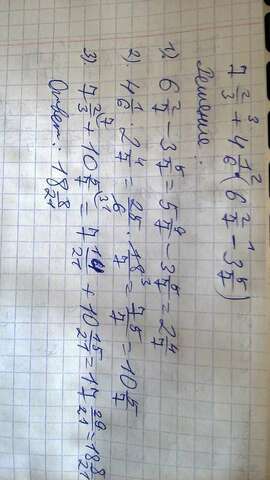 7 2/3 + 4 1/6 · (6 2/7 − 3 5/7)
Решение:
1) 6 2/7 − 3 5/7 = 5 9/7 − 3 5/7 = 2 4/7
2) 4 1/6 · 2 4/7 = 25/6 · 18/7 = 75/7 = 10 5/7
3) 7 2/3 + 10 5/7 = 7 14/21 + 10 15/21 = 17 29/21 = 18 8/21
Ответ: 18 8/21